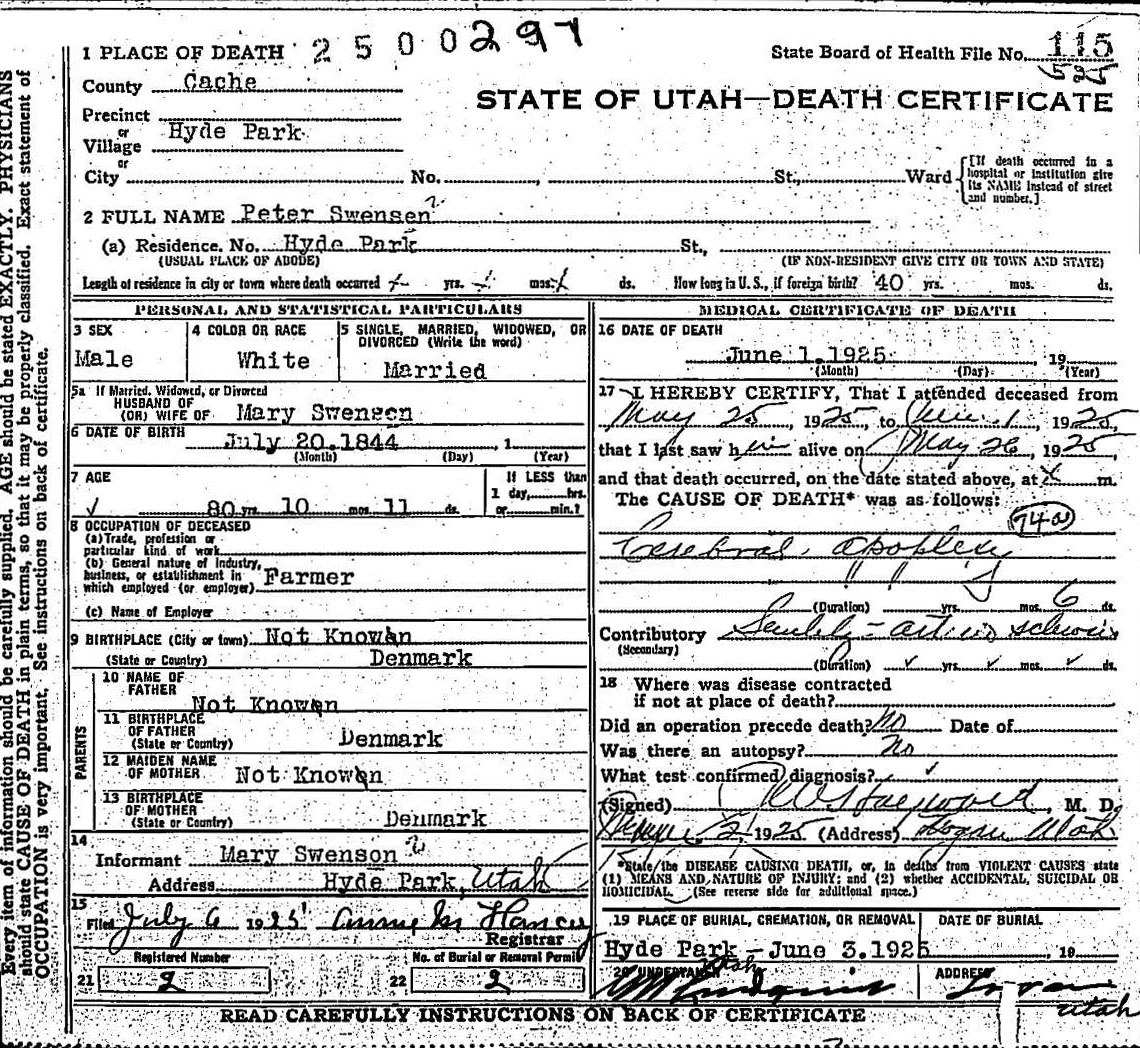 Every item of information should be carefully supplied. AGE should be stated EXACTLY. PHYSICIANS
should state CAUSE OF DEATH in plain terms, so that it may be properly classified. Exact statement of
OCCUPATION is very important. See instructions on back of certificate.
1 PLACE OF DEATH 2500297
State Board of Health File No. 115
525
County Cache
STATE OF UTAH—DEATH CERTIFICATE
Precinct
or
Village Hyde Park
or
City No. , St., Ward
[If death occurred in a
hospital or institution give
its NAME instead of street
and number.]
2 FULL NAME Peter Swensen ?
(a) Residence. No. Hyde Park St.,
(USUAL PLACE OF ABODE) (IF NON-RESIDENT GIVE CITY OR TOWN AND STATE)
Length of residence in city or town where death occurred yrs. mos. ds. How long in U.S., if foreign birth? 40 yrs. mos. ds.
PERSONAL AND STATISTICAL PARTICULARS
3 SEX
Male
4 COLOR OR RACE
White
5 SINGLE, MARRIED, WIDOWED, OR
DIVORCED (Write the word)
Married
5a If Married, Widowed, or Divorced
HUSBAND OF
(OR) WIFE OF Mary Swensen
6 DATE OF BIRTH July 20.1844 , 1
(Month) (Day) (Year)
7 AGE
80 yrs. 10 mos. 11 ds.
If LESS than
1 day, hrs.
or min.?
8 OCCUPATION OF DECEASED
(a) Trade, profession or
particular kind of work
(b) General nature of Industry,
business, or establishment in
which employed (or employer) Farmer
(c) Name of Employer
9 BIRTHPLACE (City or town) Not Knowen
(State or Country) Denmark
PARENTS
10 NAME OF
FATHER
Not Knowen
11 BIRTHPLACE
OF FATHER
(State or Country) Denmark
12 MAIDEN NAME
OF MOTHER Not Knowen
13 BIRTHPLACE
OF MOTHER
(State or Country) Denmark
14
Informant Mary Swenson ?
Address Hyde Park, Utah
15
Filed July 6 1925
Registrar
Registered Number
21 2
No. of Burial or Removal Permit
22 2
MEDICAL CERTIFICATE OF DEATH
16 DATE OF DEATH
June 1.1925 , 19
(Month) (Day) (Year)
17 I HEREBY CERTIFY, That I attended deceased from
May 25, 1925, to June 1, 1925,
that I last saw him alive on May 26, 1925,
and that death occurred, on the date stated above, at m.
The CAUSE OF DEATH* was as follows:
74a
Cerebral apoplexy
(Duration) yrs. mos. 6 ds.
Contributory
(Secondary)
(Duration) yrs. mos. ds.
18 Where was disease contracted
if not at place of death?
Did an operation precede death? No Date of
Was there an autopsy? No
What test confirmed diagnosis?
(Signed) , M. D.
2 1925 (Address) Logan Utah
*State the DISEASE CAUSING DEATH, or, in deaths from VIOLENT CAUSES state
(1) MEANS AND NATURE OF INJURY; and (2) whether ACCIDENTAL, SUICIDAL OR
HOMICIDAL. (See reverse side for additional space.)
19 PLACE OF BURIAL, CREMATION, OR REMOVAL DATE OF BURIAL
Hyde Park - June 3.1925 , 19
Utah
20 UNDERTAKER ADDRESS
Logan
Utah
READ CAREFULLY INSTRUCTIONS ON BACK OF CERTIFICATE